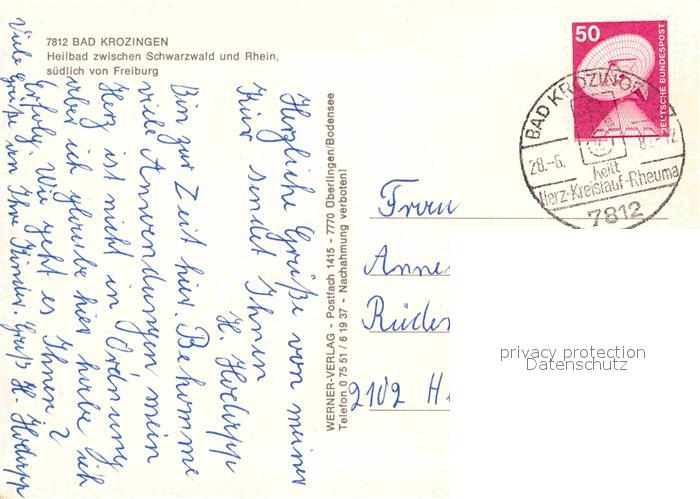 7812 BAD KROZINGEN
Heilbad zwischen Schwarzwald und Rhein,
südlich von Freiburg
Herzliche Grüße von meiner
Kur sendet Ihnen
H. Hodapp
Bin zur Zeit hier. Bekomme
viele Anwendungen mein
Herz ist nicht in Ordnung
aber ich glaube hier habe ich
Erfolg. Wie geht es Ihnen?
Viele Grüße von Ihre Kinder. Gruß H. Hodapp
WERNER-VERLAG - Postfach 1415 - 7770 Überlingen/Bodensee
Telefon 0 75 51 / 6 19 37 - Nachahmung verboten!
50
DEUTSCHE BUNDESPOST
BAD KROZINGEN
28.-6. 82-12
heilt
Herz-Kreislauf-Rheuma
7812
Frau
Anne
Rüde
2102 H
privacy protection
Datenschutz